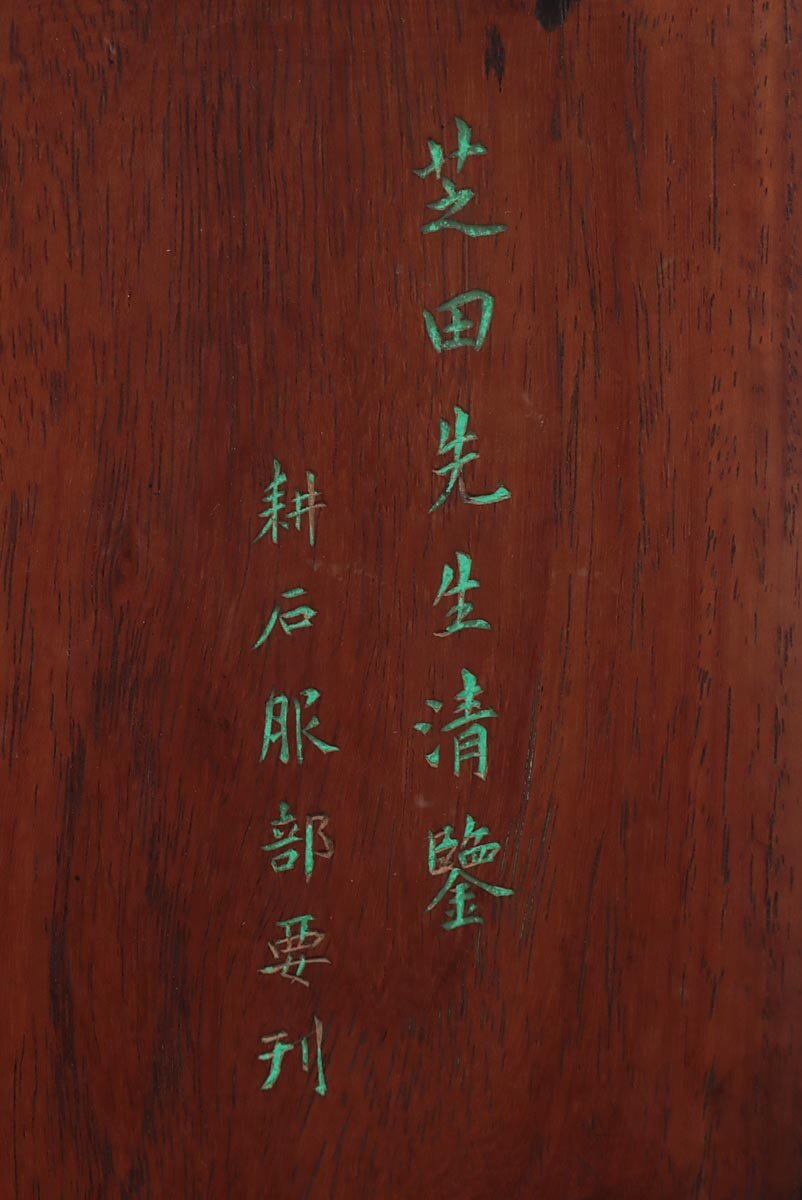 芝田先生清鑒
耕石服部要刊